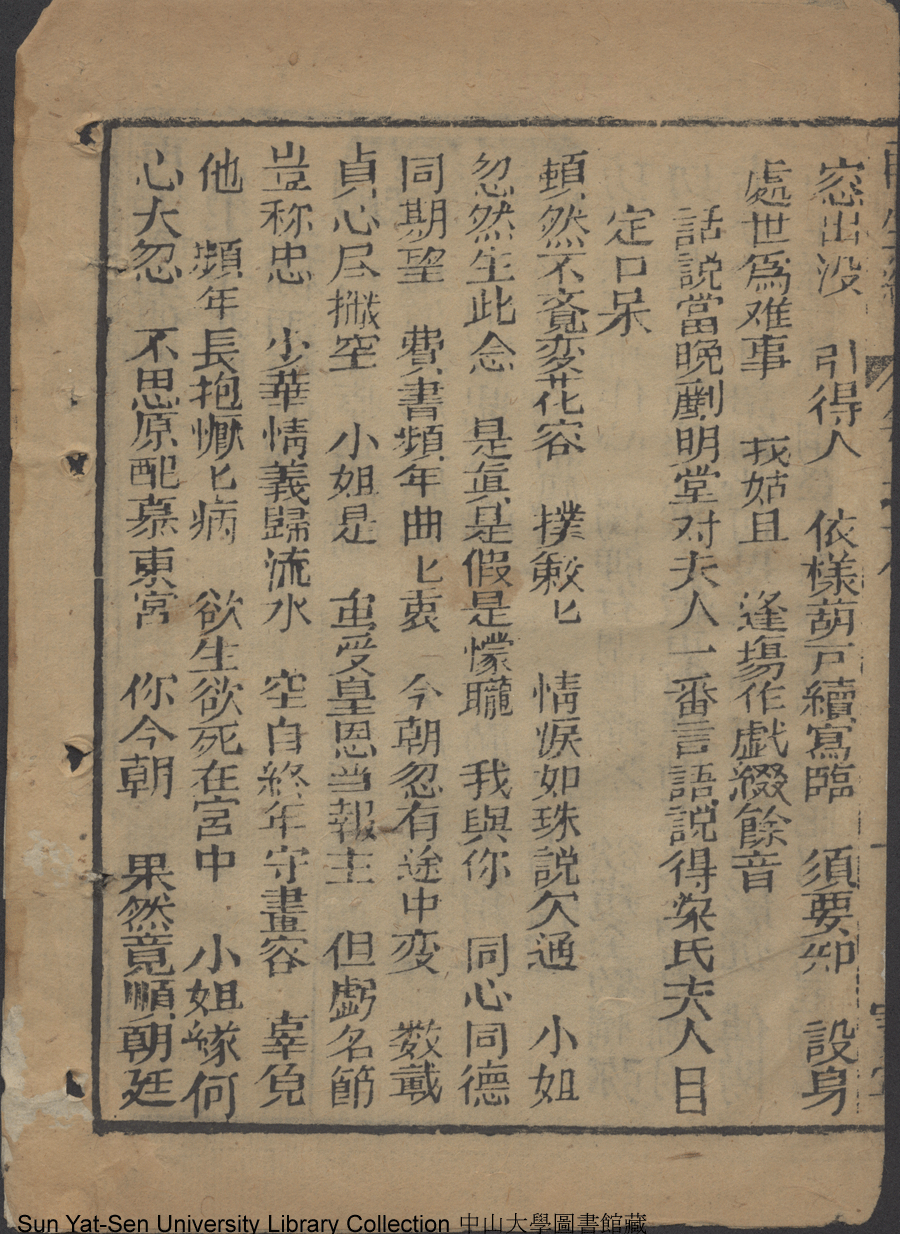 窓出没　引得人　依樣葫戸續寫臨　須要卿　設身
處世爲难事　我姑且　逢塲作戯綴餘音
話說當晚酈明堂对夫人一番言語說得梁氏夫人目
定口呆
頓然不竟変花容　撲簌匕　情淚如珠説欠通　小姐
忽然生此念　是眞是假是懞矓　我與你　同心同德
同期望　費書頻年曲匕衷　今朝忽有途中变　数載
貞心尽撇空　小姐是　重受皇恩当報主　但虧名節
豈称忠　少華情義歸流水　空自終年守畫容　辜負
他　頻年長抱懨匕病　欲生欲死在宮中　小姐縁何
心大忍　不思原配慕東宮　你今朝　果然竟順朝廷
Sun Yat-Sen University Library Collection 中山大學圖書館藏